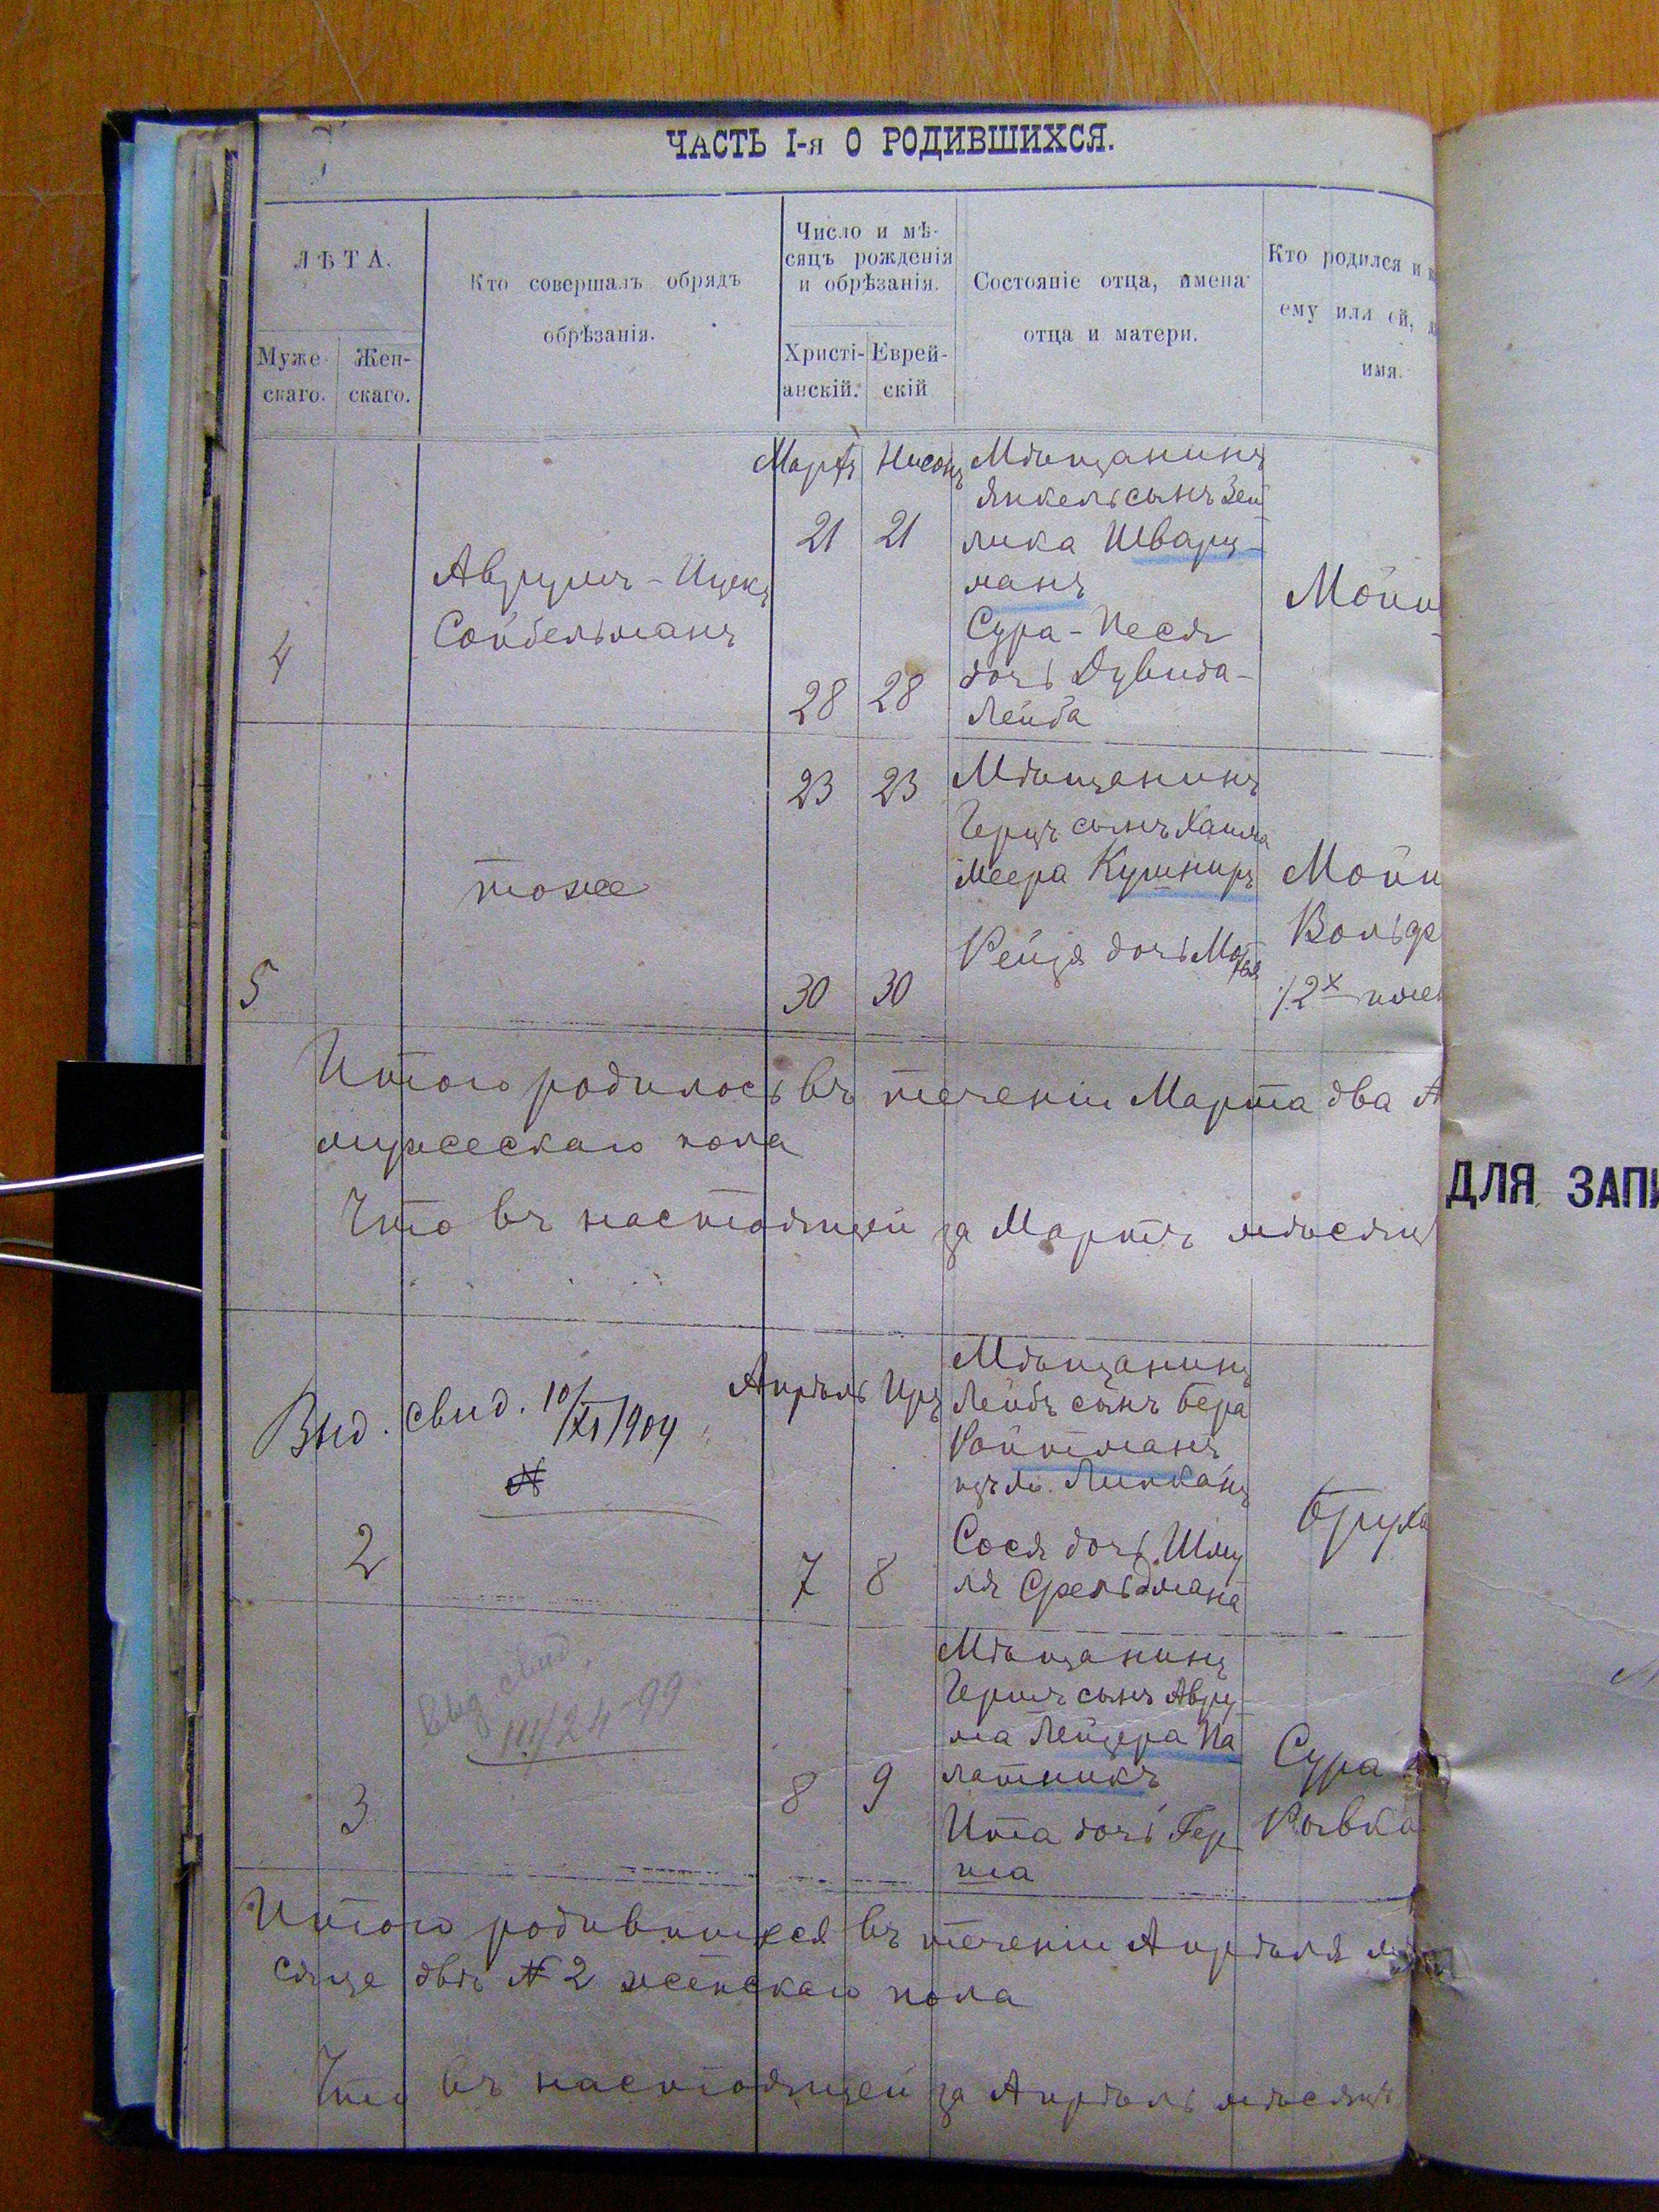 ЧАСТЬ I-я О РОДИВШИХСЯ.
ЛѢТА.
Муже-
скаго.
Жен-
скаго.
Кто совершалъ обрядъ
обрѣзанія.
Число и мѣ-
сяцъ рожденія
и обрѣзанія.
Христі-
анскій.
Еврей-
скій
Состояніе отца, имена
отца и матери.
Кто родился и
ему или ей,
имя.
Мартъ Нисонъ
4
Аврумъ-Ицекъ
Сойбельманъ
21 21
28 28
Мѣщанинъ
Янкель сынъ Зей
лика Шварц-
манъ
Сура-Песя
дочь Дувида-
Лейба
5
тоже
23 23
30 30
Мѣщанинъ
Герцъ сынъ Хаима
Меера Кушниръ
Рейзя дочь
Вольф
Итого родилось въ теченіи Марта два
мужескаго пола
Что въ настоящей за Мартъ мѣсяцъ
Выд. свид. 10/XI 1904
№
Апрѣль Иръ
2
7 8
Мѣщанинъ
Лейбъ сынъ Бера
Ройтманъ
изъ м. Липканъ
Сося дочь Шму
ля Фельдмана
Бруха
выд. свид.
III/24-99
3
8 9
Мѣщанинъ
Гершъ сынъ Авру-
ма Лейзера Па
латникъ
Ита дочь Гер
ша
Сура
Ривка
Итого родившихся въ теченіи Апрѣля мѣ
сяца двѣ № 2 женскаго пола
Что въ настоящей за Апрѣль мѣсяцъ
ДЛЯ ЗАПИ